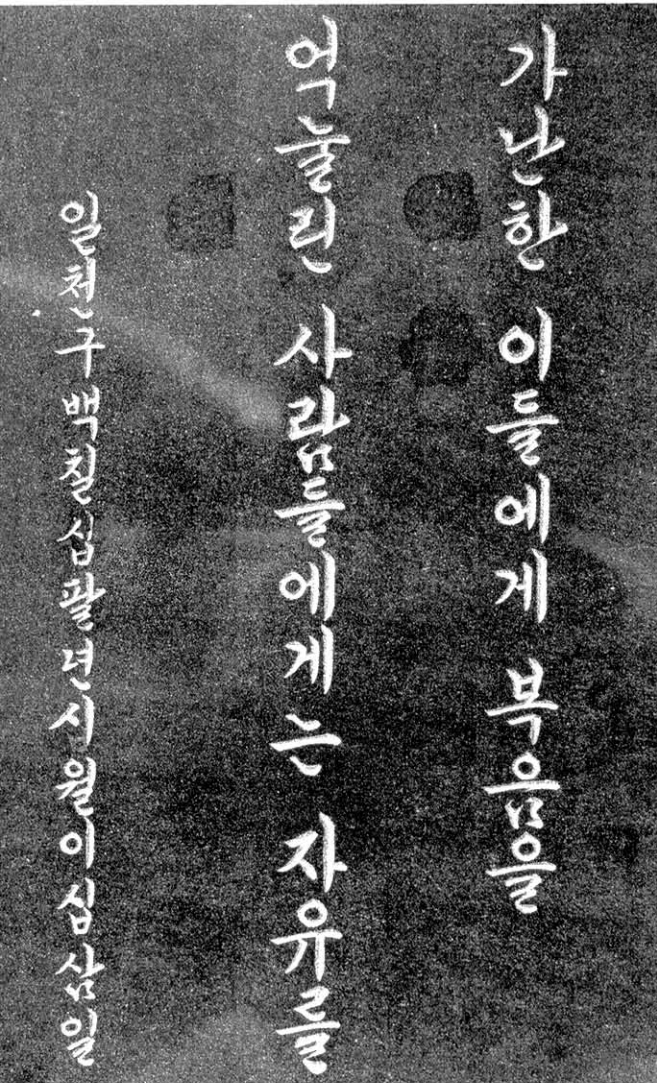 가난한 이들에게 복음을
억눌린 사람들에게는 자유를
일천구백칠십팔년시월이십삼일